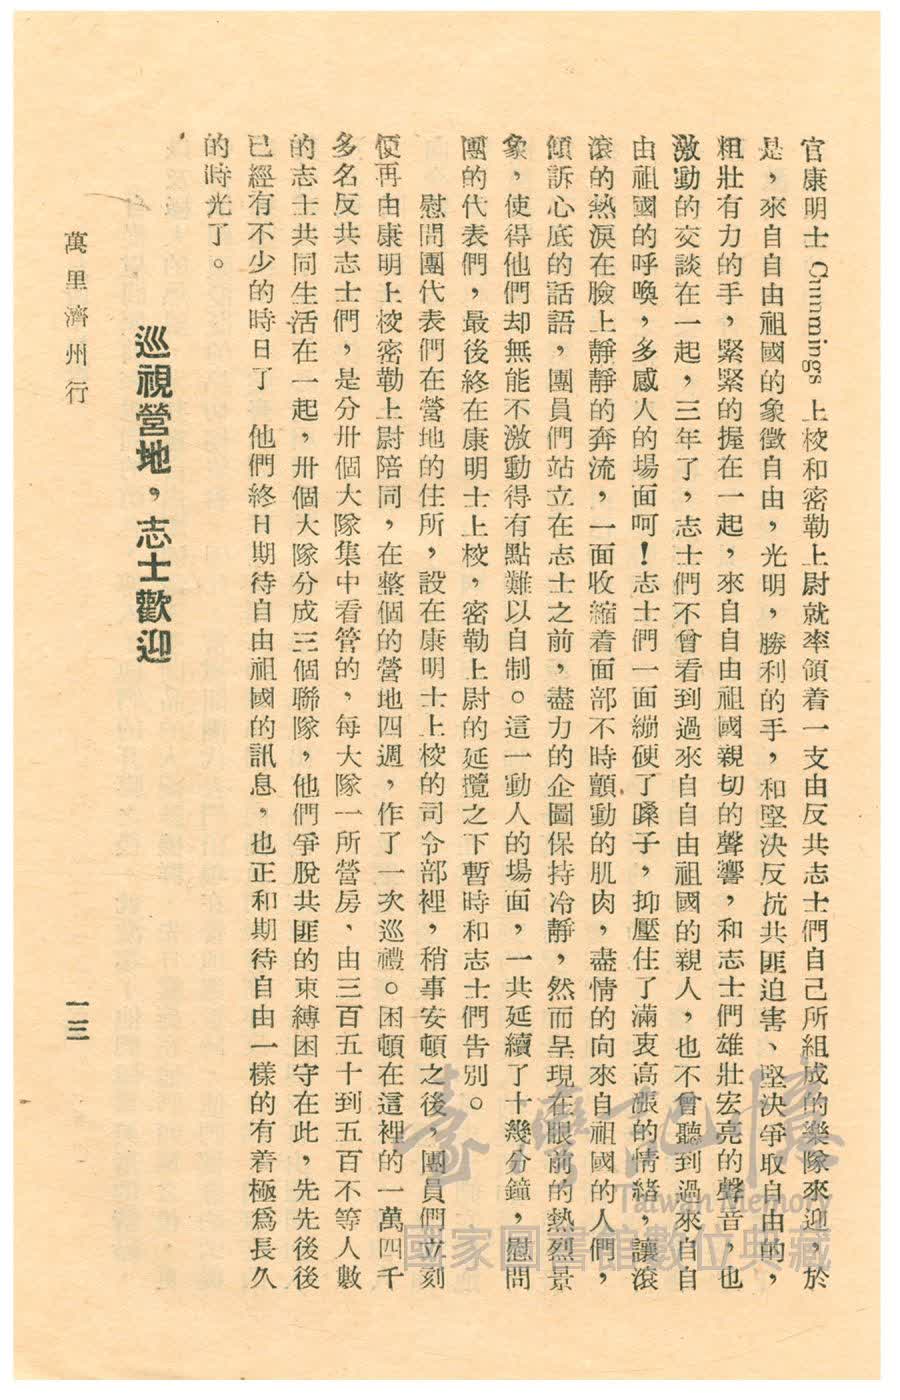 官康明士 Cummings 上校和密勒上尉就率領着一支由反共志士們自己所組成的樂隊來迎，於
是，來自自由祖國的象徵自由，光明，勝利的手，和堅決反抗共匪迫害、堅決爭取自由的，
粗壯有力的手，緊緊的握在一起，來自自由祖國親切的聲響，和志士們雄壯宏亮的聲音，也
激動的交談在一起，三年了，志士們不曾看到過來自自由祖國的親人，也不曾聽到過來自自
由祖國的呼喚，多感人的場面呵！志士們一面繃硬了嗓子，抑壓住了滿衷高漲的情緒，讓滾
滾的熱淚在臉上靜靜的奔流，一面收縮着面部不時顫動的肌肉，盡情的向來自祖國的人們，
傾訴心底的話語，團員們站立在志士之前，盡力的企圖保持冷靜，然而呈現在眼前的熱烈景
象，使得他們却無能不激動得有點難以自制。這一動人的場面，一共延續了十幾分鐘，慰問
團的代表們，最後終在康明士上校，密勒上尉的延攬之下暫時和志士們告別。
慰問團代表們在營地的住所，設在康明士上校的司令部裡，稍事安頓之後，團員們立刻
便再由康明上校密勒上尉陪同，在整個的營地四週，作了一次巡禮。困頓在這裡的一萬四千
多名反共志士們，是分卅個大隊集中看管的，每大隊一所營房、由三百五十到五百不等人數
的志士共同生活在一起，卅個大隊分成三個聯隊，他們爭脫共匪的束縛困守在此，先先後後
已經有不少的時日了，他們終日期待自由祖國的訊息，也正和期待自由一樣的有着極爲長久
的時光了。
巡視營地，志士歡迎
萬里濟州行
一三
臺灣記憶
Taiwan Memory
國家圖書館數位典藏